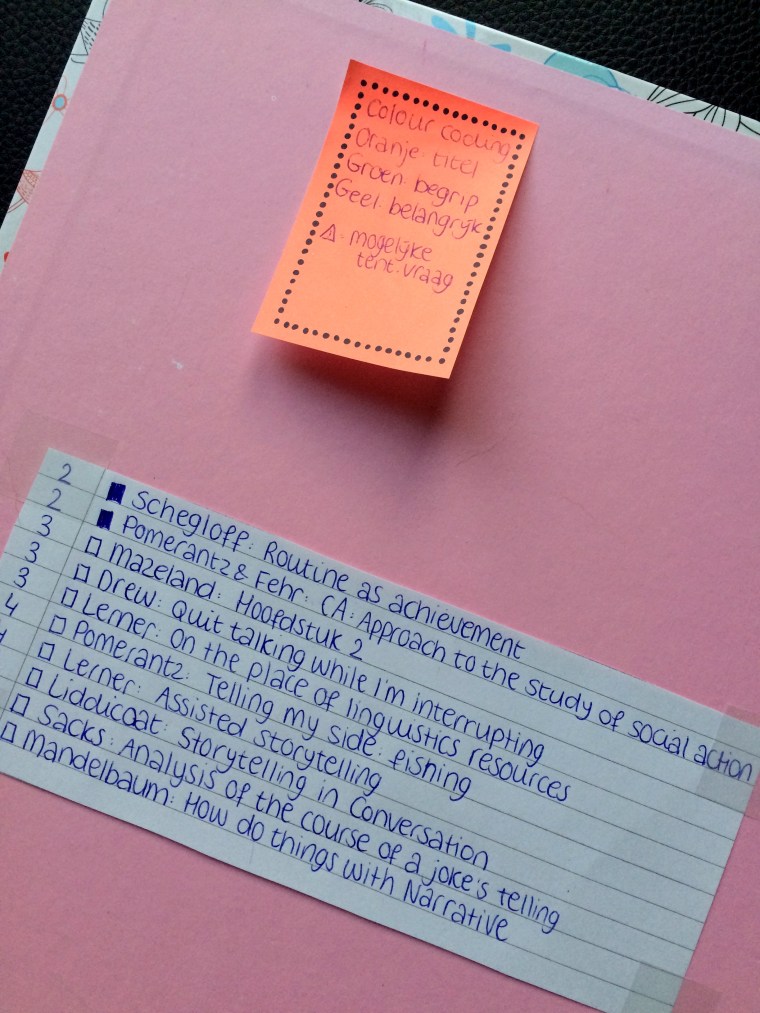 Colour coding
Oranje: titel
Groen: begrip
Geel: belangrijk
⚠: mogelijke
tent. vraag
2 Schegloff: Routine as achievement
2 Pomerantz & Fehr: CA: Approach to the study of social action
3 Mazeland: Hoofdstuk 2
3 Drew: Quit talking while I'm interrupting
3 Lerner: On the place of linguistics resources
4 Pomerantz: Telling my side: fishing
Lerner: Assisted storytelling
Liddicoat: Storytelling in Conversation
Sacks: Analysis of the course of a joke's telling
Mandelbaum: How do things with Narrative